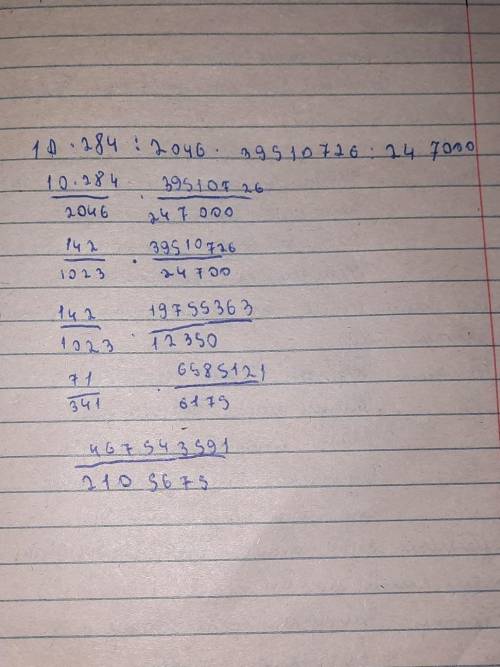 10 · 284 : 2046 · 39510726 : 247000
10·284 / 2046 · 39510726 / 247000
142 / 1023 · 39510726 / 24700
142 / 1023 · 19755363 / 12350
71 / 341 · 6585121 / 6175
467543591 / 2105675